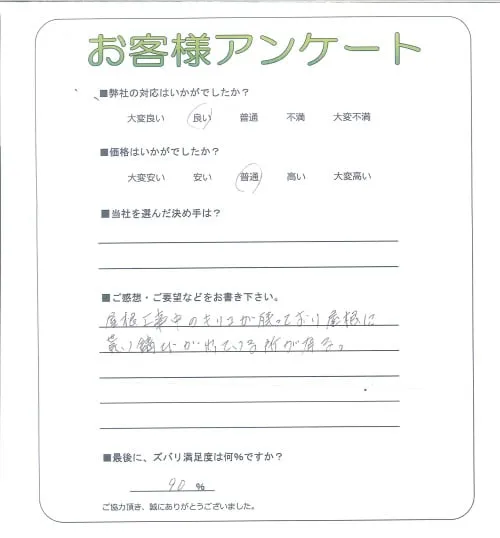 お客様アンケート
■弊社の対応はいかがでしたか？
大変良い 良い 普通 不満 大変不満
■価格はいかがでしたか？
大変安い 安い 普通 高い 大変高い
■当社を選んだ決め手は？
■ご感想・ご要望などをお書き下さい。
屋根工事中のキリコが残っており屋根に
錆びが出ている所が有る。
■最後に、ズバリ満足度は何％ですか？
90 %
ご協力頂き、誠にありがとうございました。